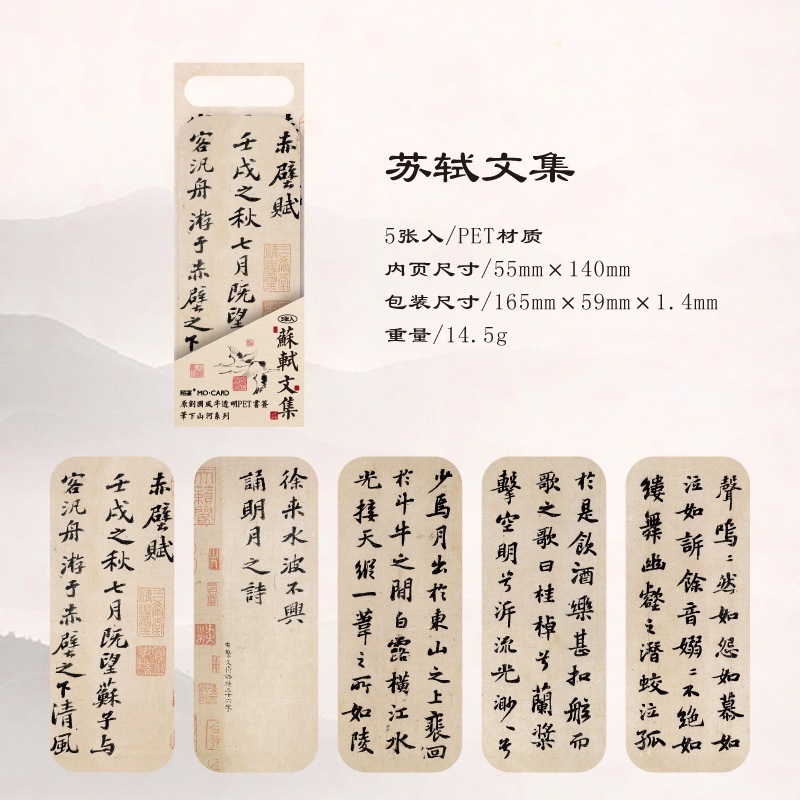 赤壁賦
壬戌之秋七月既望
客汎舟游于赤壁之下
5張入
蘇軾文集
陌渡 MO·CARD
原創國風半透明PET書簽
筆下山河系列
苏轼文集
5张入/PET材质
内页尺寸/55mm×140mm
包装尺寸/165mm×59mm×1.4mm
重量/14.5g
赤壁賦
壬戌之秋七月既望蘇子與
客汎舟游于赤壁之下清風
徐来水波不興
誦明月之詩
少焉月出於東山之上裵回
於斗牛之間白露橫江水
光接天縱一葦之所如陵
於是飲酒樂甚扣舷而
歌之歌曰桂棹兮蘭槳
擊空明兮泝流光渺〻兮
聲嗚〻然如怨如慕如
泣如訴餘音嫋〻不絕如
縷舞幽壑之潛蛟泣孤